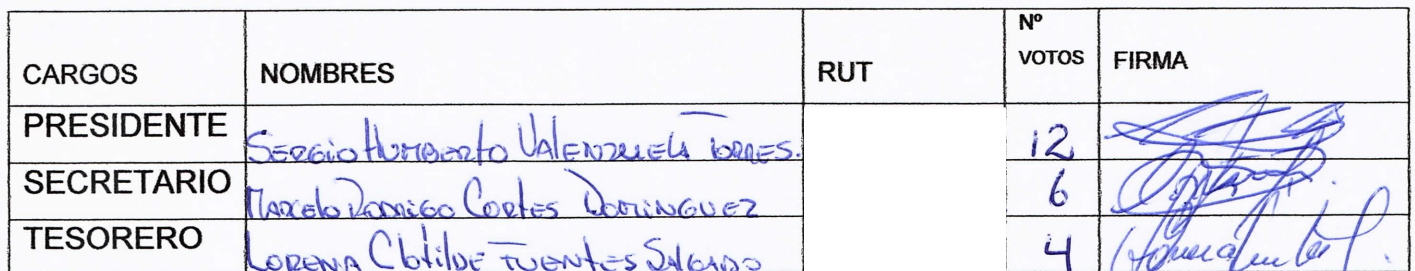 CARGOS NOMBRES RUT Nº VOTOS FIRMA
PRESIDENTE Sergio Humberto Valenzuela Torres. 12
SECRETARIO Marcelo Rodrigo Cortes Dominguez 6
TESORERO Lorena Clotilde Fuentes Salgado 4